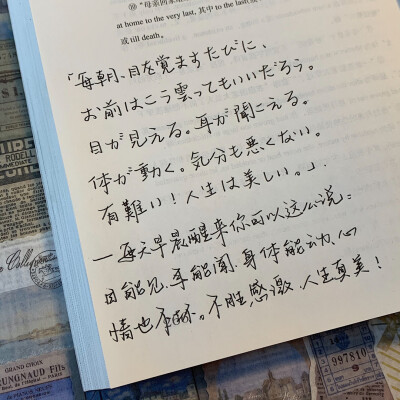 ⑩ "母亲回家
at home to the very last, 其中 to the last
或till death.
「每朝、目を覚ますたびに、
お前はこう雲ってもいいだろう。
目が見える。耳が聞こえる。
体が動く。気分も悪くない。
有難い！人生は美しい。」.
— 每天早晨醒来你可以这么说：
目能见，耳能闻，身体能动，心
情也不坏。不胜感激，人生真美！
RODELL
IMMEDIATE
Collection
GRAND CHOIX
RUNGNAUD FILS
997810
9